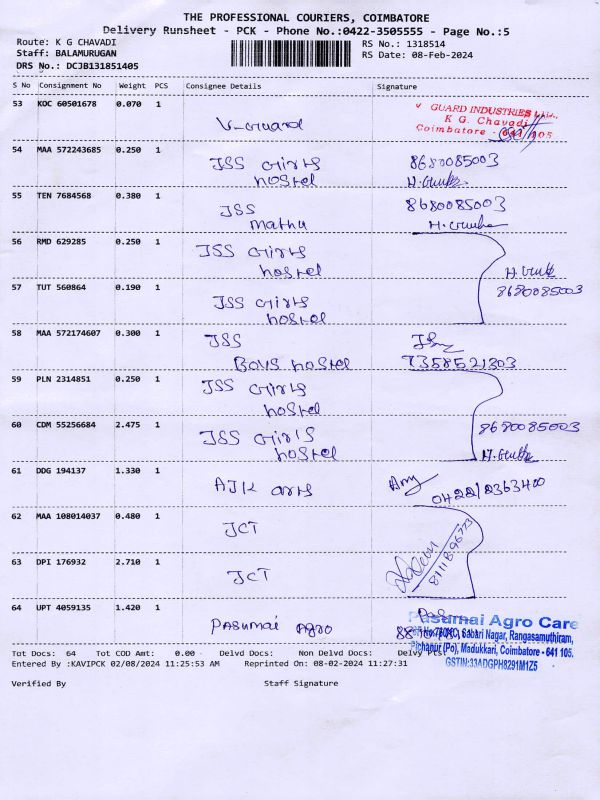 THE PROFESSIONAL COURIERS, COIMBATORE
Delivery Runsheet - PCK - Phone No.:0422-3505555 - Page No.:5
Route: K G CHAVADI RS No.: 1318514
Staff: BALAMURUGAN RS Date: 08-Feb-2024
DRS No.: DCJB131851405
S No Consignment No Weight PCS Consignee Details Signature
53 KOC 60501678 0.070 1 V-Guard
GUARD INDUSTRIES Ltd.,
K G. Chavadi
Coimbatore - 641 105
54 MAA 572243685 0.250 1 JSS Girls 8680085003
hostel
55 TEN 7684568 0.380 1 JSS 8680085003
mathu
56 RMD 629285 0.250 1 JSS Girls
hostel
57 TUT 560864 0.190 1 JSS Girls 8680085003
hostel
58 MAA 572174607 0.300 1 JSS
Boys hostel 7358521303
59 PLN 2314851 0.250 1 JSS Girls
hostel
60 CDM 55256684 2.475 1 JSS Girls 8680085003
hostel
61 DDG 194137 1.330 1 AJK arts 0422/2363400
62 MAA 108014037 0.480 1 JCT
63 DPI 176932 2.710 1 JCT
64 UPT 4059135 1.420 1 Pasumai Agro
Pasumai Agro Care
Sabari Nagar, Rangasamuthiram,
Pichanur (Po), Madukkari, Coimbatore - 641 105.
GSTIN:33ADGPH8291M1Z5
Tot Docs: 64 Tot COD Amt: 0.00 Delvd Docs: Non Delvd Docs: Delvy Pts:
Entered By :KAVIPCK 02/08/2024 11:25:53 AM Reprinted On: 08-02-2024 11:27:31
Verified By Staff Signature